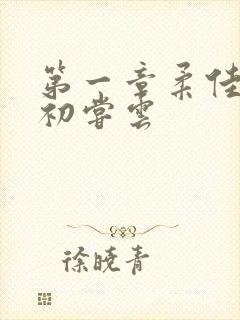 第一章柔佳
初尝云
徐晓青